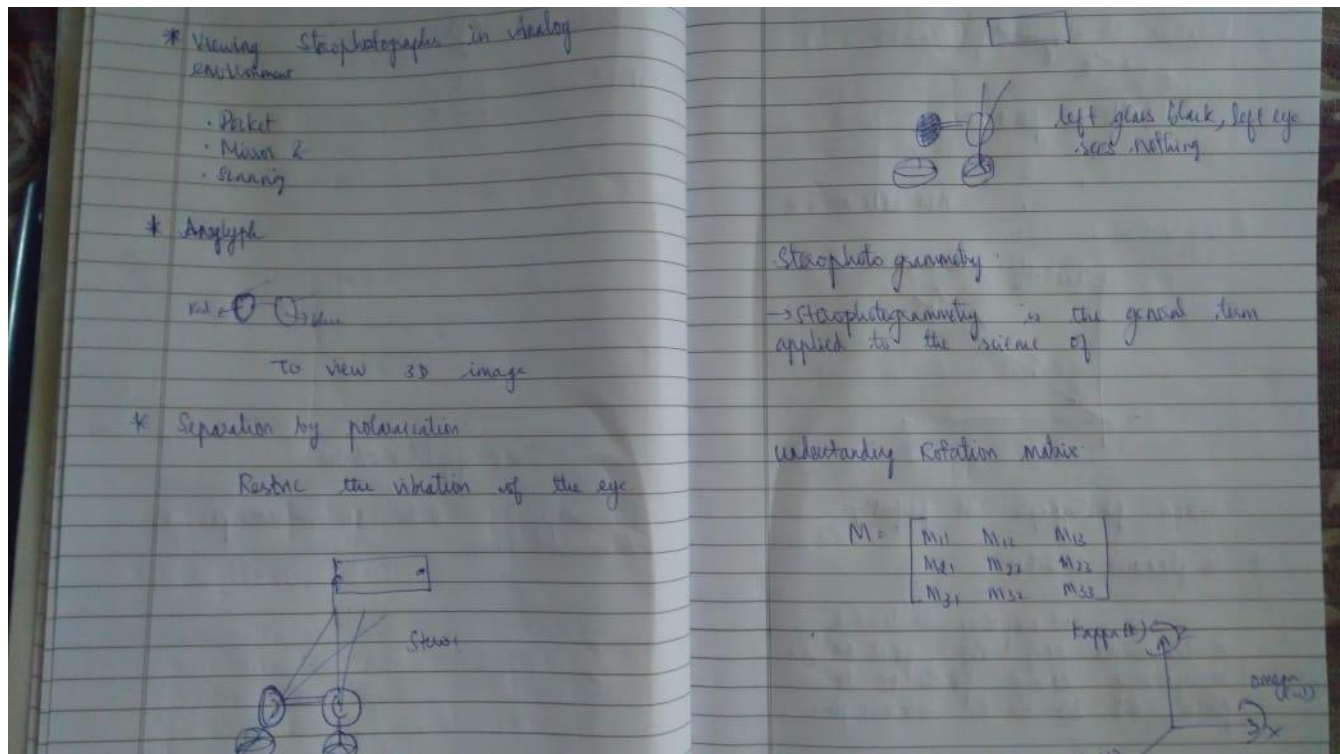 * Viewing Steophotographs in Analog
environment
. Pocket
. Mirror &
. Scanning
* Anaglyph
Red
Blue
To view 3D image
* Separation by polarisation
Restric the vibration of the eye.
left glass black, left eye
sees nothing
Steophoto grammetry.
→ Steophotogrammetry is the general term
applied to the science of
understanding Rotation matrix
M = M11 M12 M13
M21 M22 M23
M31 M32 M33
Kappa (k)
omega
x